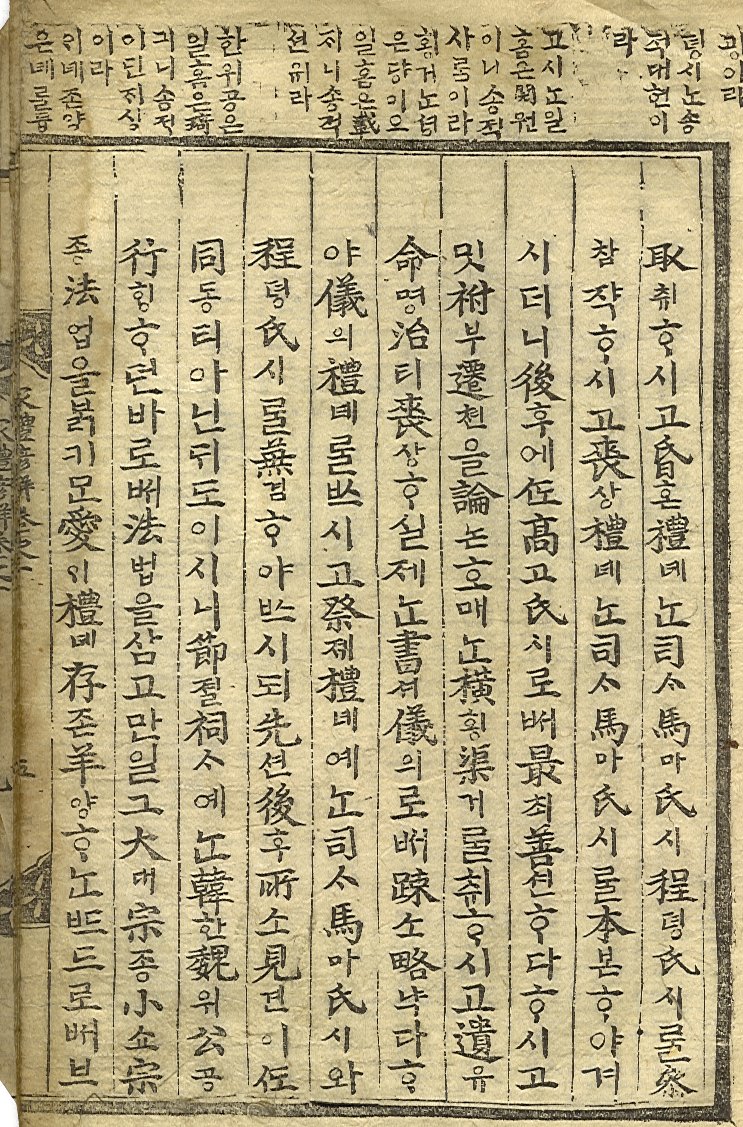 굉이라
뎡시ᄂᆞᆫ송
적대현이
라
고시ᄂᆞᆫ일
홈은閌원
이니송적
사ᄅᆞᆷ이라
횡거ᄂᆞᆫ셩
은댱이오
일홈은載
ᄌᆡ니송적
션유라
한위공은
일홈은琦
긔니송적
이라
ᄋᆡ례존양
은례ᄅᆞᆯ
取취ᄒᆞ시고昏혼禮례ᄂᆞᆫ司ᄉᆞ馬마氏시程뎡氏시ᄅᆞᆯ參
참쟉ᄒᆞ시고喪상禮례ᄂᆞᆫ司ᄉᆞ馬마氏시ᄅᆞᆯ本본ᄒᆞ야겨
시더니後후에ᄯᅩ高고氏시로ᄡᅥ最최善션ᄒᆞ다ᄒᆞ시고
밋祔부遷쳔을論논ᄒᆞ매ᄂᆞᆫ橫횡渠거ᄅᆞᆯ취ᄒᆞ시고遺유
命명治티喪상ᄒᆞ실제ᄂᆞᆫ書셔儀의로ᄡᅥ踈소略냑다ᄒᆞ
야儀의禮례ᄅᆞᆯᄡᅳ시고祭제禮례예ᄂᆞᆫ司ᄉᆞ馬마氏시와
程뎡氏시ᄅᆞᆯ蒹겸ᄒᆞ야ᄡᅳ시되先션後후所소見견이ᄯᅩ
同동티아닌ᄃᆡ도이시니節졀祠ᄉᆞ예ᄂᆞᆫ韓한魏위公공
行ᄒᆡᆼᄒᆞ던바로ᄡᅥ法법을삼고만일그大대宗종小쇼宗
종法업을ᄇᆞᆰ키모愛ᄋᆡ禮례存존羊양ᄒᆞᄂᆞᆫᄠᅳ드로ᄡᅥ브
家禮諺解卷之一
五